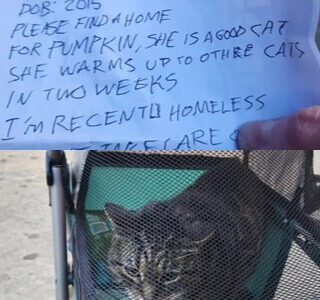 DOB: 2015
PLEASE FIND A HOME
FOR PUMPKIN, SHE IS A GOOD CAT
SHE WARMS UP TO OTHRE CATS
IN TWO WEEKS
I'M RECENTLY HOMELESS
CARE